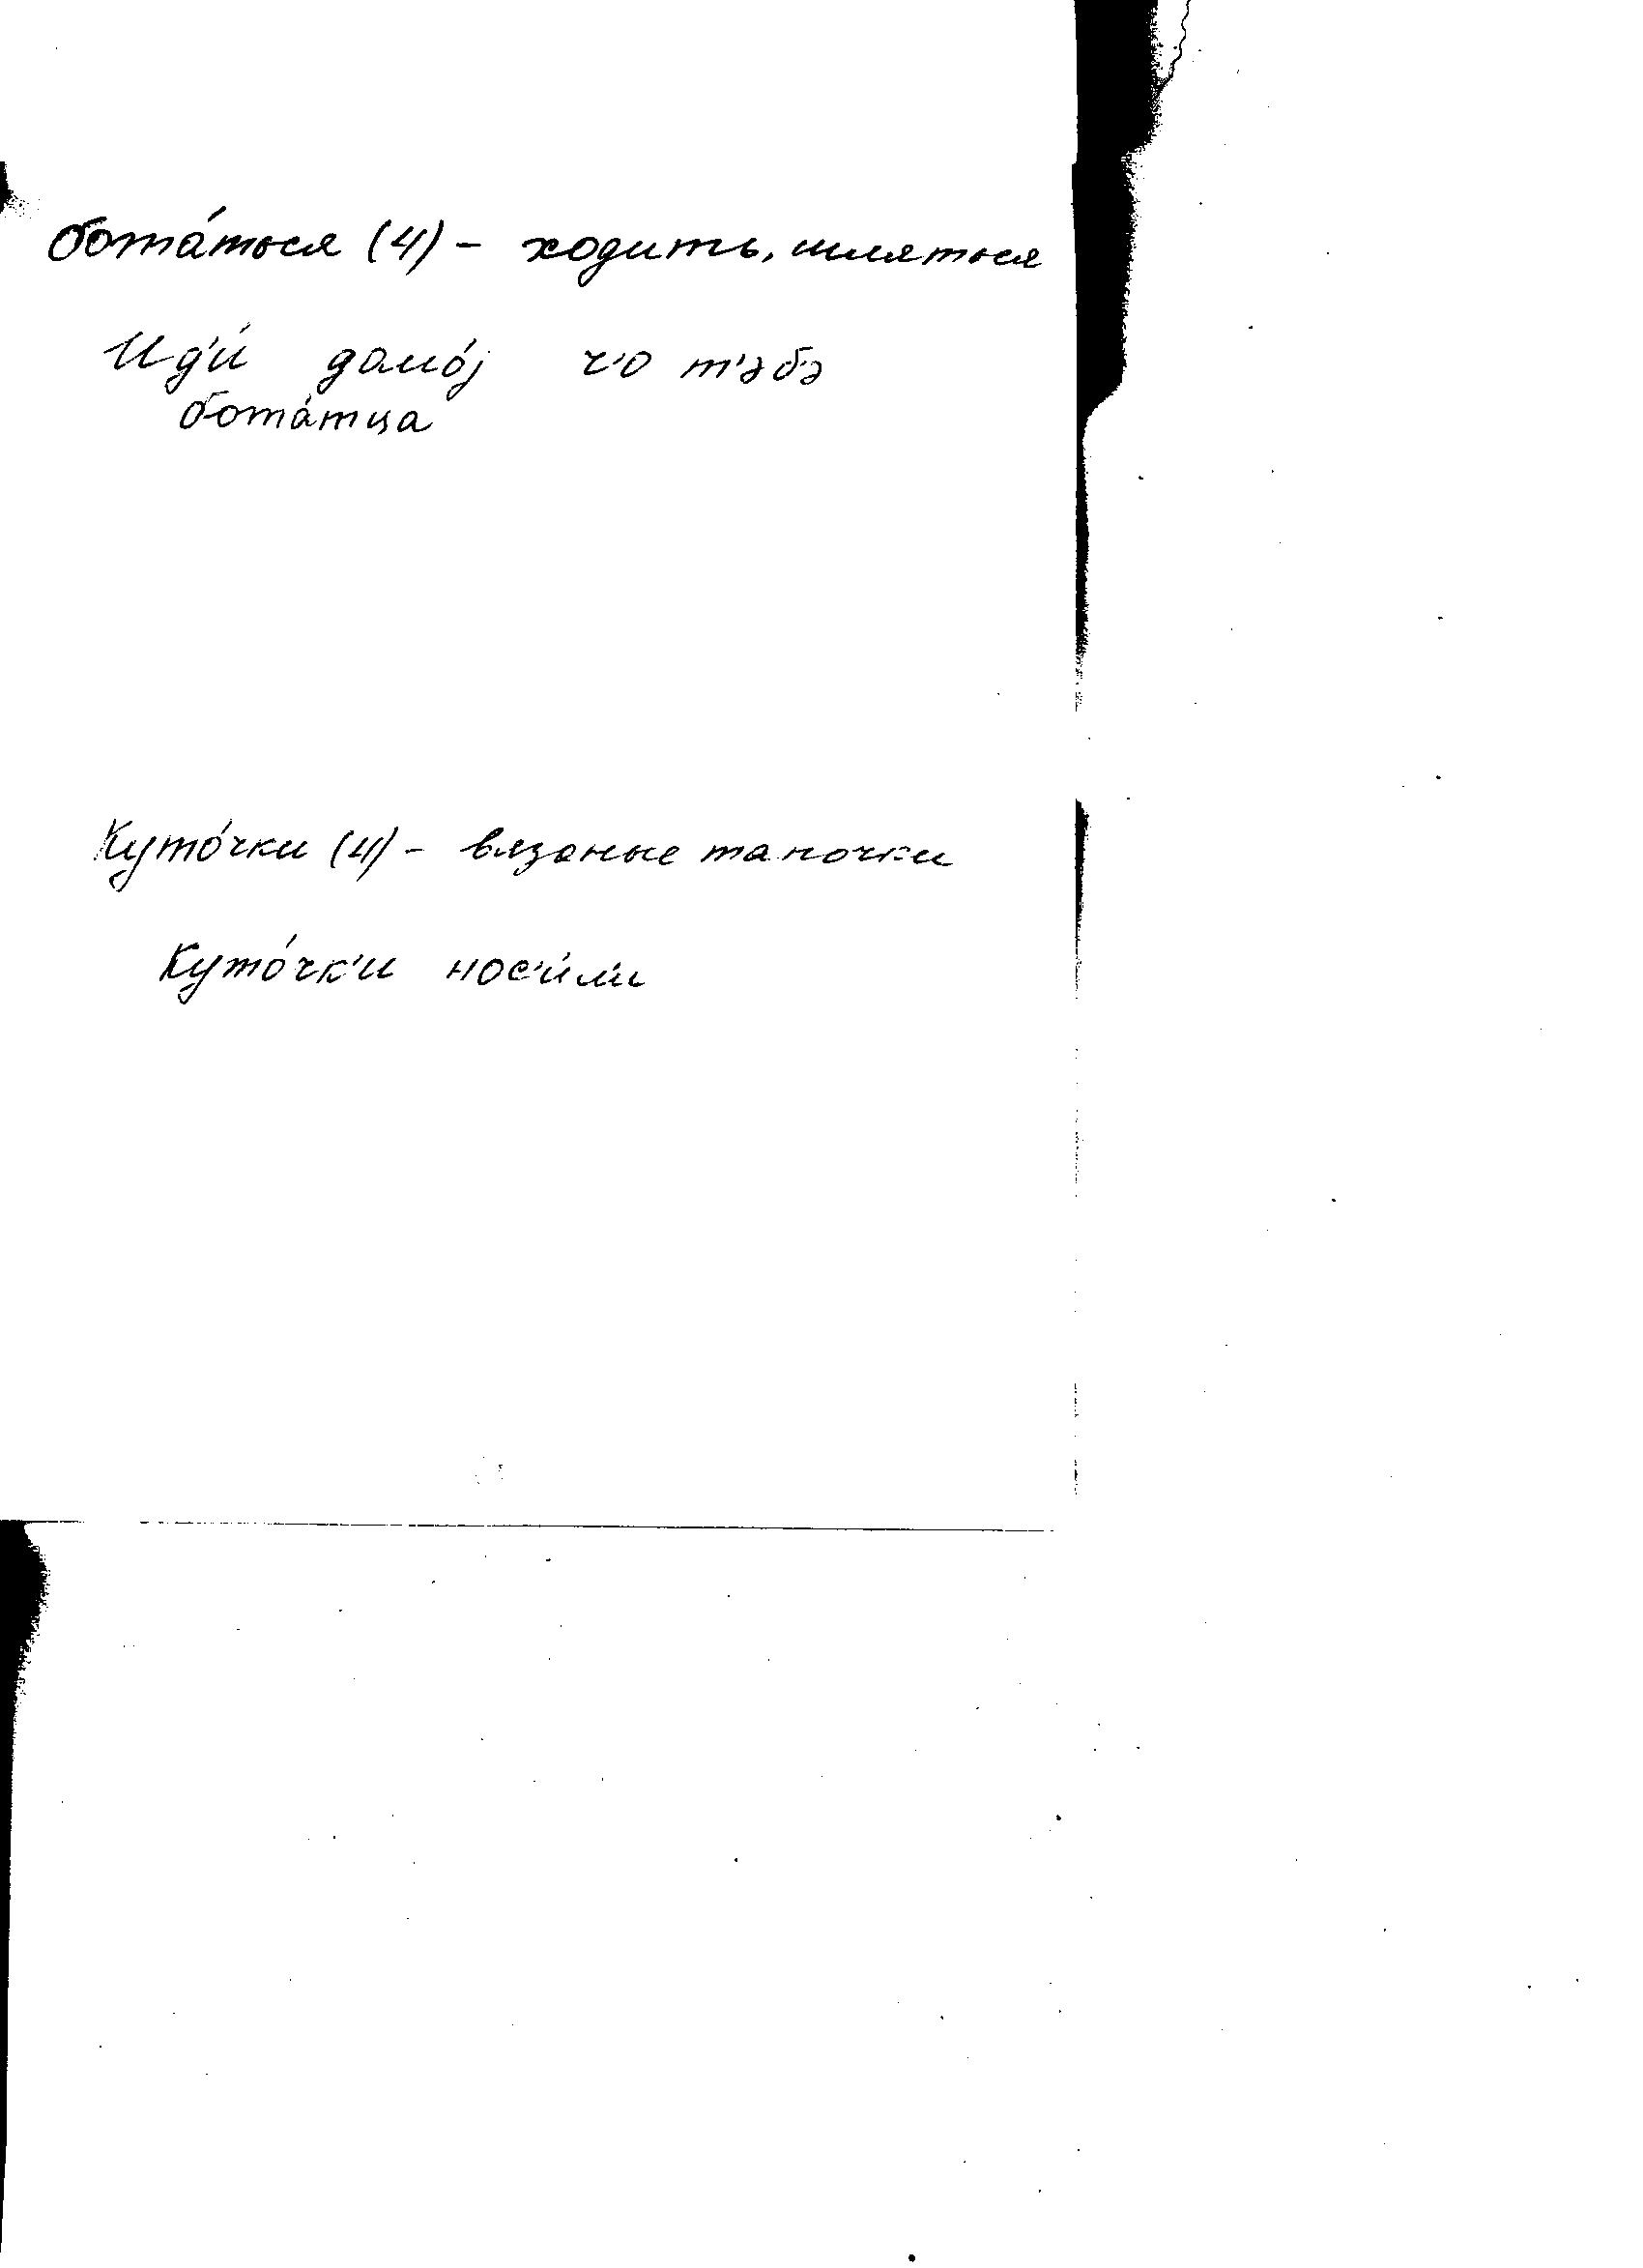 бота́ться (4) – ходить, шляться
Ид'и́ домо́j ч'о т'эбэ
бота́тца
Куто́чки (4) – вязаные тапочки
Куто́чк'и нос'и́л'и